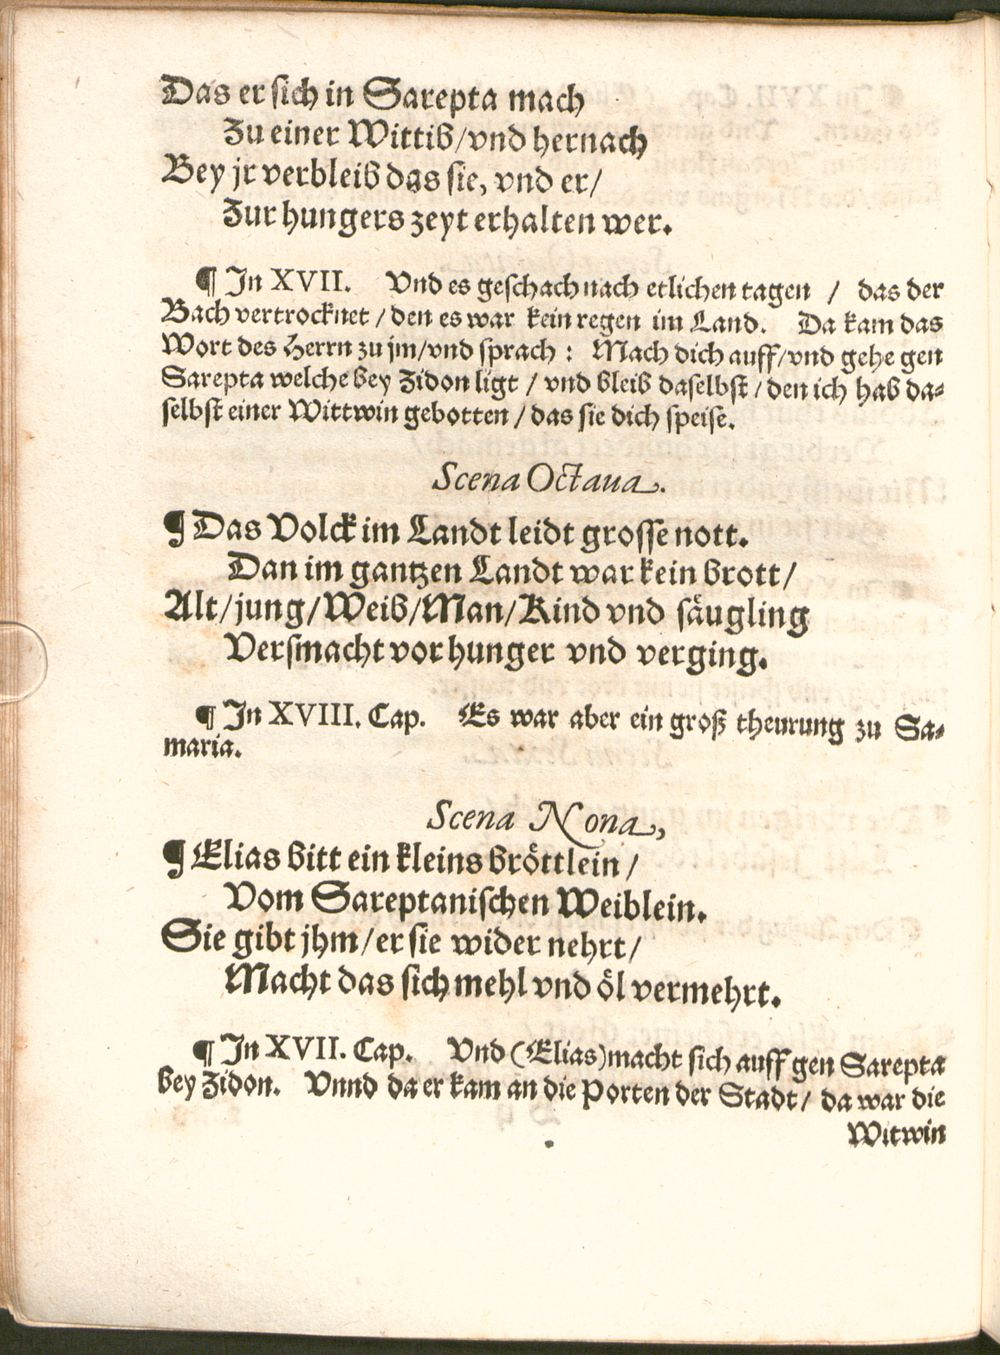 Das er sich in Sarepta mach
Zu einer Wittib/vnd hernach
Bey jr verbleib das sie, vnd er/
Zur hungers zeyt erhalten wer.
¶ In XVII. Vnd es geschach nach etlichen tagen / das der
Bach vertrocknet / den es war kein regen im Land. Da kam das
Wort des Herrn zu jm/vnd sprach : Mach dich auff/vnd gehe gen
Sarepta welche bey Zidon ligt / vnd bleib daselbst / den ich hab da-
selbst einer Wittwin gebotten / das sie dich speise.
Scena Octaua.
¶ Das Volck im Landt leidt grosse nott.
Dan im gantzen Landt war kein brott/
Alt/jung/Weib/Man/Kind vnd säugling
Versmacht vor hunger vnd verging.
¶ In XVIII. Cap. Es war aber ein groß theurung zu Sa-
maria.
Scena Nona,
¶ Elias bitt ein kleins bröttlein /
Vom Sareptanischen Weiblein.
Sie gibt jhm/er sie wider nehrt/
Macht das sich mehl vnd öl vermehrt.
¶ In XVII. Cap. Vnd (Elias)macht sich auff gen Sarepta
bey Zidon. Vnnd da er kam an die Porten der Stadt/ da war die
Witwin